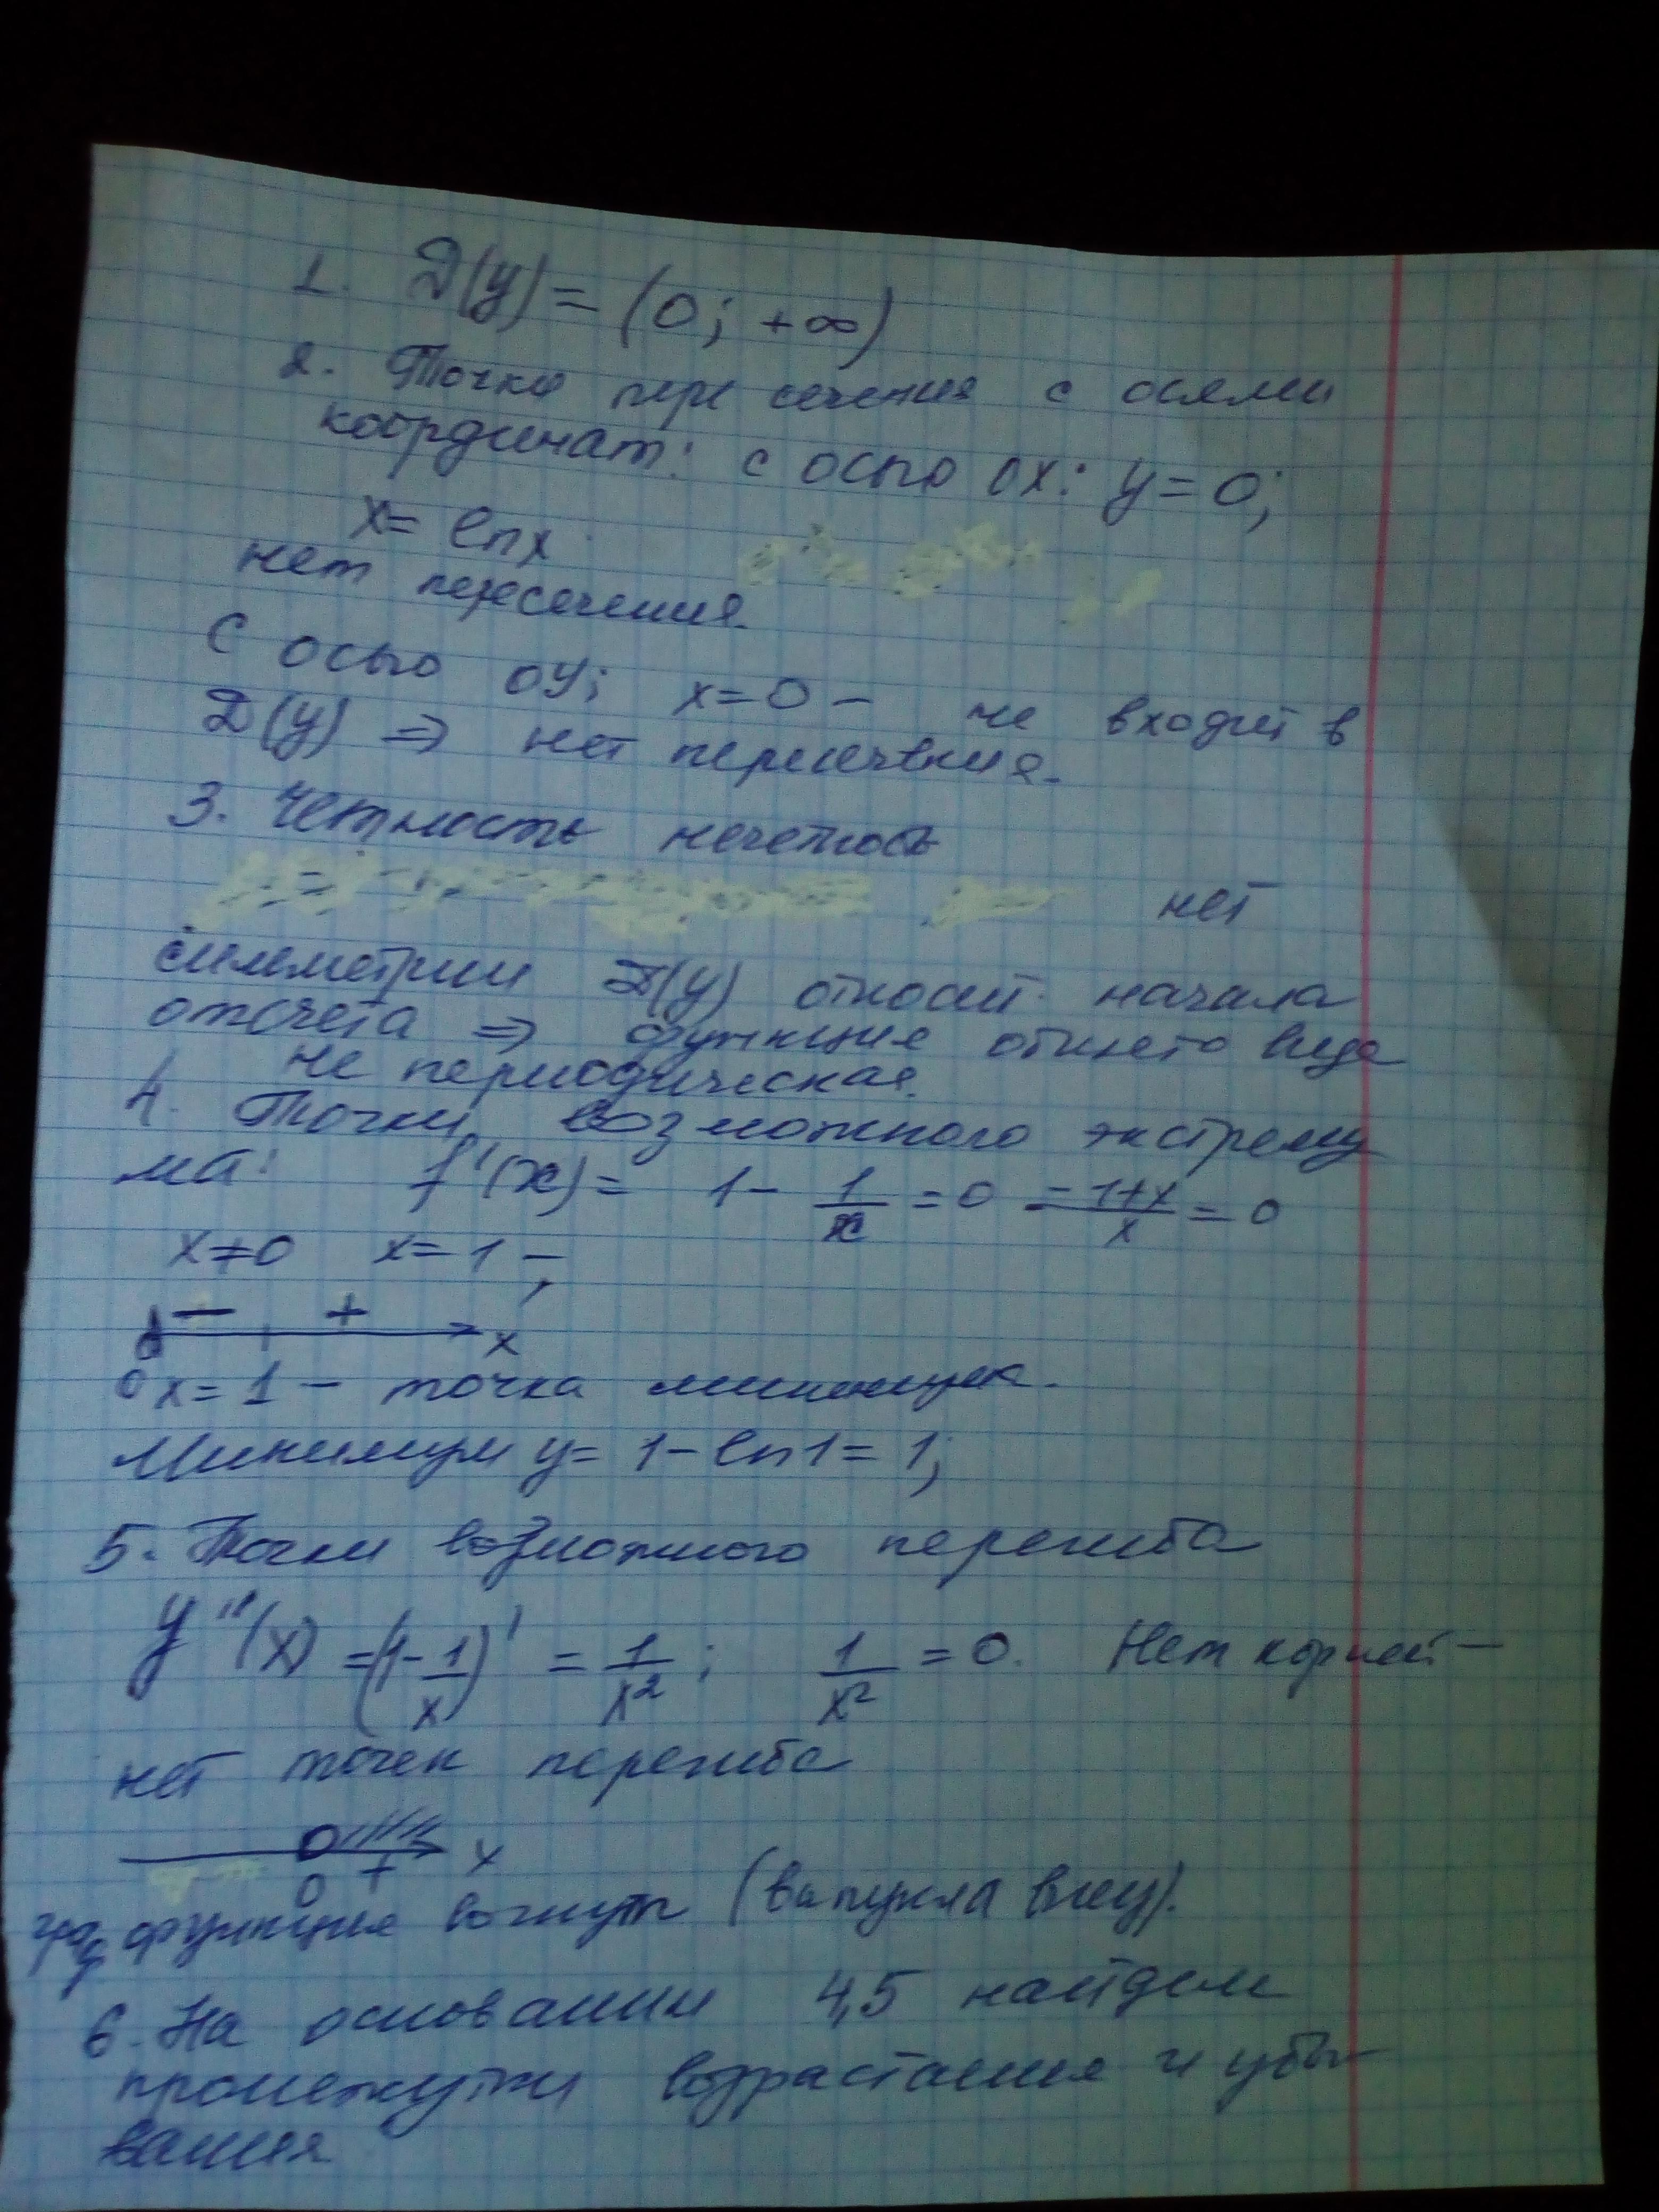 1. D(y) = (0; +∞)
2. Точки пересечения с осями
координат: с осью ox: y = 0;
x = ln x
нет пересечения.
С осью oy; x = 0 – не входит в
D(y) ⇒ нет пересечения.
3. Четность нечетность
нет
симметрии D(y) относит. начала
отсчета ⇒ функция общего вида
не периодическая.
4. Точки возможного экстрему
ма: f'(x) = 1 - 1/x = 0 = 1+x/x = 0
x≠0 x = 1 –;
– + x
0 x = 1 – точка минимума.
Минимум y = 1 – ln 1 = 1;
5. Точки возможного перегиба
y''(x) = (1 - 1/x)' = 1/x²; 1/x² = 0. Нет корней –
нет точек перегиба
0 + x
граф функция вогнут (выпукла вниз).
6. На основании 4,5 найдем
промежутки возрастания и убы
вания